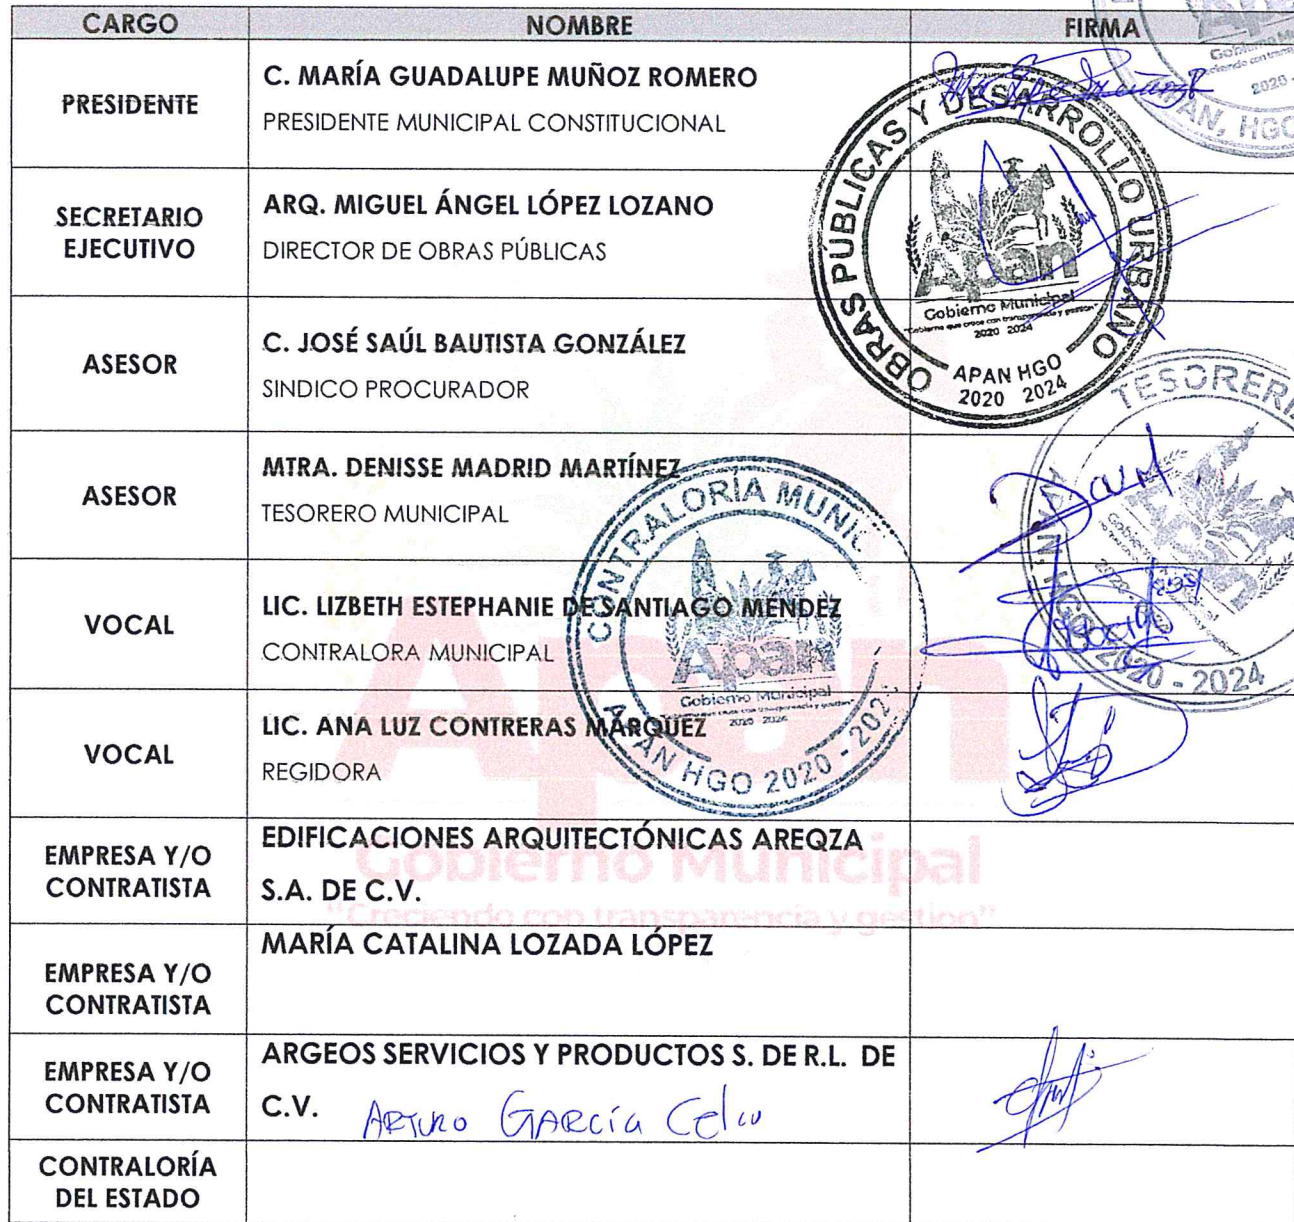 CARGO NOMBRE FIRMA
PRESIDENTE
C. MARÍA GUADALUPE MUÑOZ ROMERO
PRESIDENTE MUNICIPAL CONSTITUCIONAL
SECRETARIO
EJECUTIVO
ARQ. MIGUEL ÁNGEL LÓPEZ LOZANO
DIRECTOR DE OBRAS PÚBLICAS
ASESOR
C. JOSÉ SAÚL BAUTISTA GONZÁLEZ
SINDICO PROCURADOR
ASESOR
MTRA. DENISSE MADRID MARTÍNEZ
TESORERO MUNICIPAL
VOCAL
LIC. LIZBETH ESTEPHANIE DE SANTIAGO MÉNDEZ
CONTRALORA MUNICIPAL
VOCAL
LIC. ANA LUZ CONTRERAS MÁRQUEZ
REGIDORA
EMPRESA Y/O
CONTRATISTA
EDIFICACIONES ARQUITECTÓNICAS AREQZA
S.A. DE C.V.
EMPRESA Y/O
CONTRATISTA
MARÍA CATALINA LOZADA LÓPEZ
EMPRESA Y/O
CONTRATISTA
ARGEOS SERVICIOS Y PRODUCTOS S. DE R.L. DE
C.V. ARTURO GARCÍA
CONTRALORÍA
DEL ESTADO
OBRAS PÚBLICAS Y DESARROLLO URBANO
Apan
Gobierno Municipal
2020 2024
APAN HGO
2020 2024
TESORERI
Apan
APAN, HGO
2020 - 2024
CONTRALORÍA MUNIC
Apan
Gobierno Municipal
APAN HGO 2020 - 202
APAN, HGO
Apan
Gobierno Municipal
"Creciendo con transparencia y gestion"